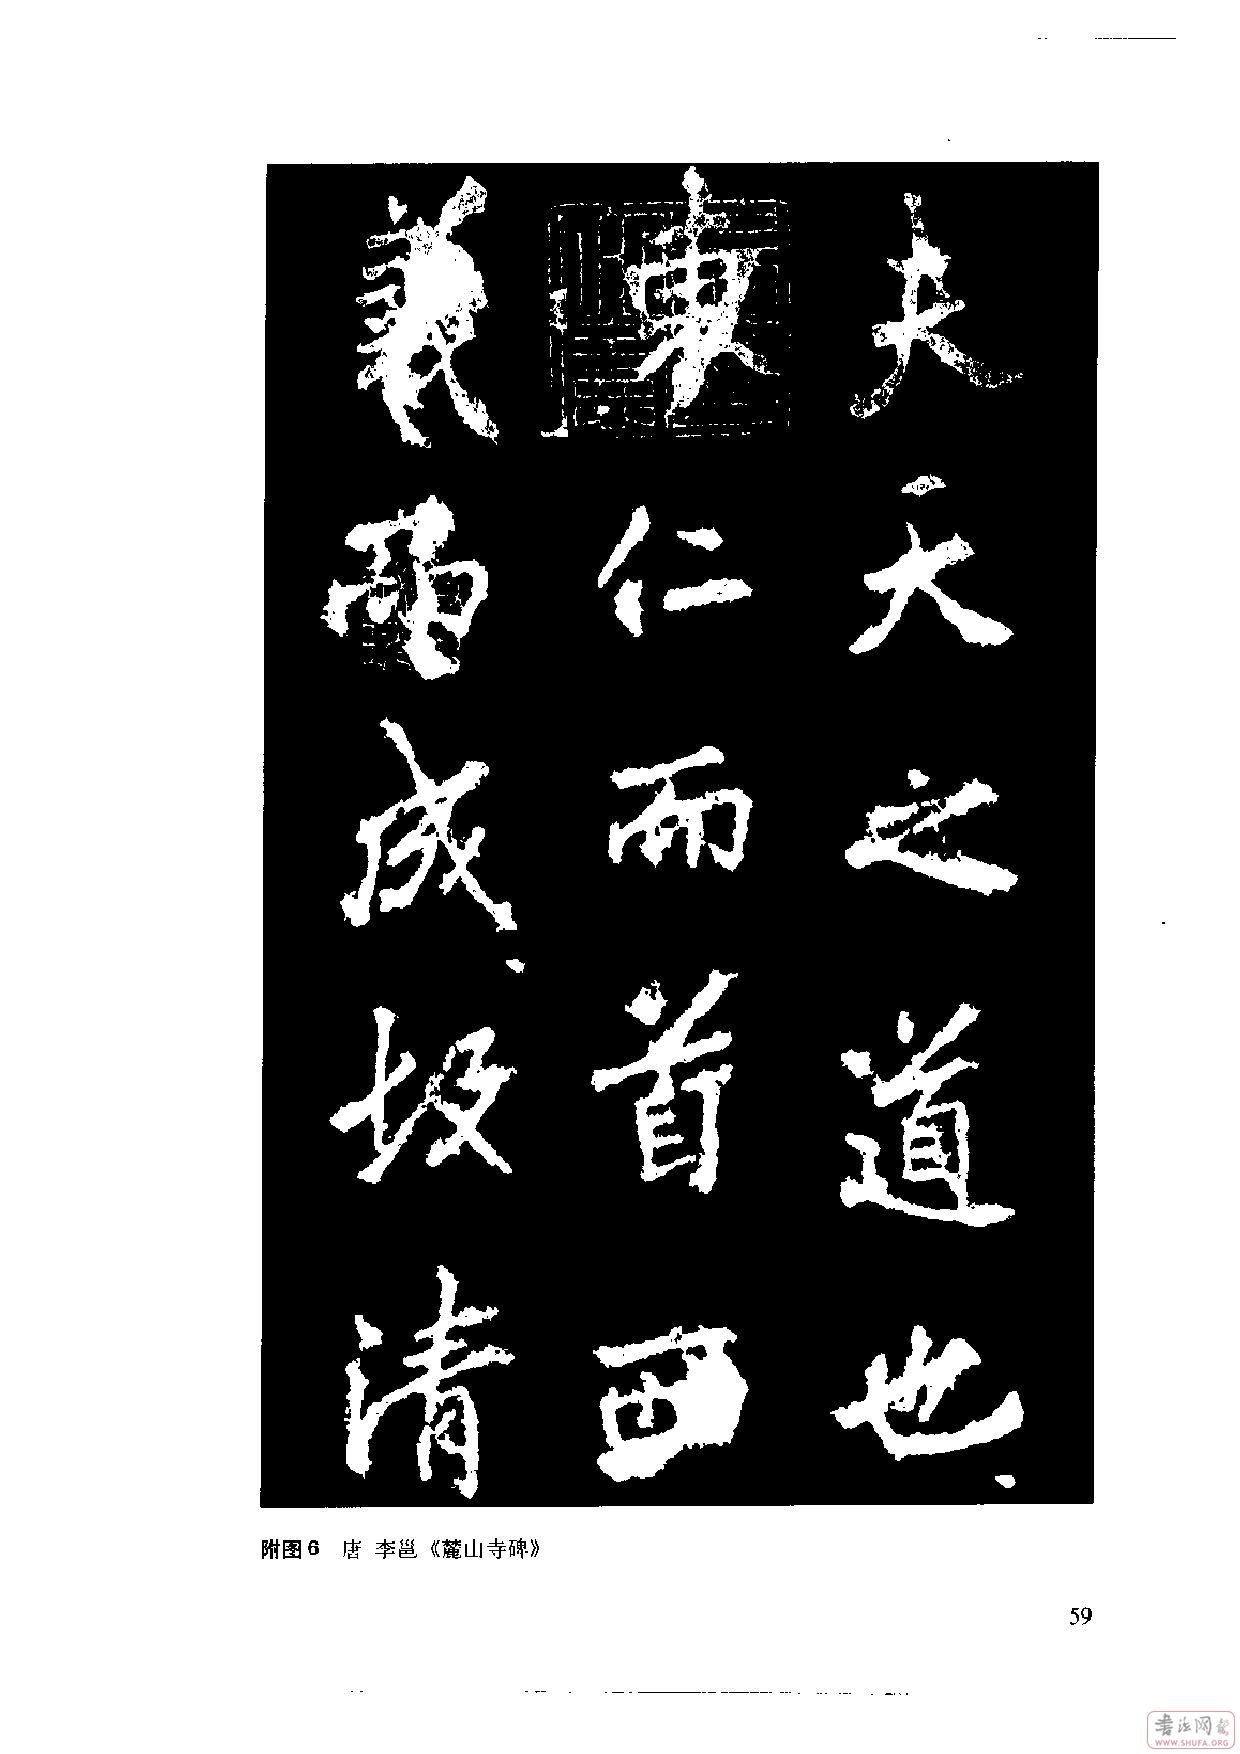 夫天之道也
東仁而首西
義而成圾清
附图6 唐 李邕《麓山寺碑》
59
书法网
WWW.SHUFA.ORG